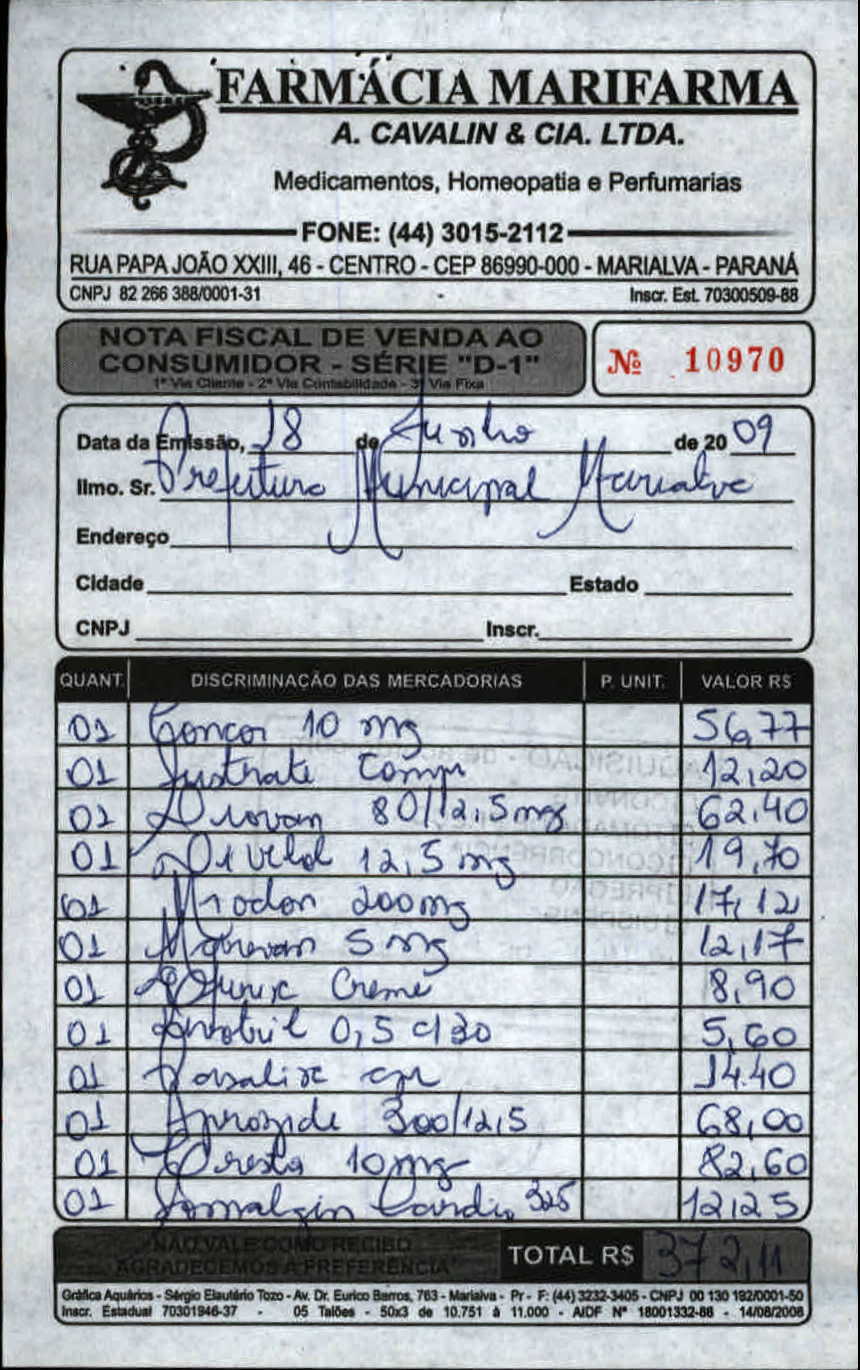 FARMÁCIA MARIFARMA
A. CAVALIN & CIA. LTDA.
Medicamentos, Homeopatia e Perfumarias
FONE: (44) 3015-2112
RUA PAPA JOÃO XXIII, 46 - CENTRO - CEP 86990-000 - MARIALVA - PARANÁ
CNPJ 82 266 388/0001-31 Inscr. Est. 70300509-88
NOTA FISCAL DE VENDA AO
CONSUMIDOR - SÉRIE "D-1"
1ª Via Cliente - 2ª Via Contabilidade - 3ª Via Fixa
Nº 10970
Data da Emissão, 18 de Junho de 2009
Ilmo. Sr. Prefeitura Municipal Marialva
Endereço
Cidade Estado
CNPJ Inscr.
QUANT. DISCRIMINAÇÃO DAS MERCADORIAS P. UNIT. VALOR R$
01 Concor 10 mg 56,77
01 Sustrate Comp 12,20
01 Diovan 80/12,5mg 62,40
01 Divelol 12,5 mg 19,70
01 200mg 17,12
01 Marevan 5 mg 12,17
01 Creme 8,90
01 Rivotril 0,5 c/30 5,60
01 cpr 14.40
01 Aprozide 300/12,5 68,00
01 Cresto 10mg 82,60
01 Somalgin Cardio 325 12,25
NÃO VALE COMO RECIBO
AGRADECEMOS A PREFERÊNCIA
TOTAL R$ 372,11
Gráfica Aquários - Sérgio Elautério Tozo - Av. Dr. Eurico Barros, 763 - Marialva - Pr - F: (44) 3232-3405 - CNPJ 00 130 192/0001-50
Inscr. Estadual 70301946-37 - 05 Talões - 50x3 de 10.751 à 11.000 - AIDF Nº 18001332-88 - 14/08/2008